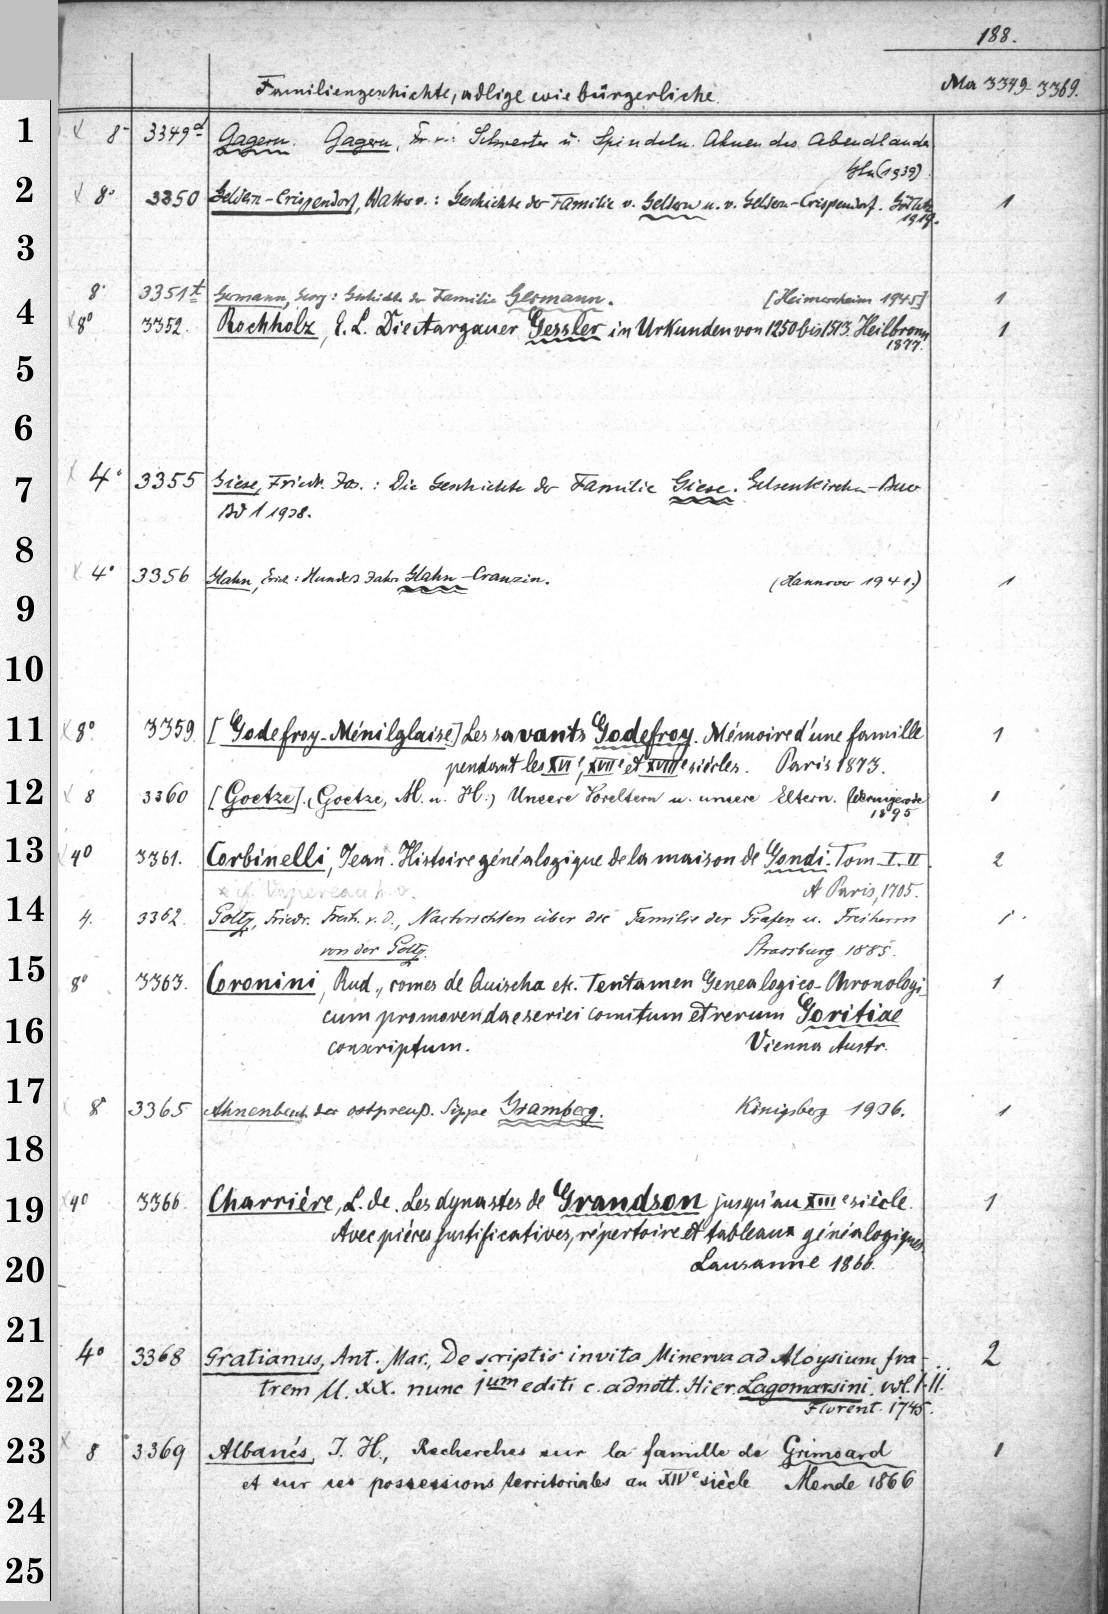 188.
Familiengeschichte, adlige wie bürgerliche. Ma 3349-3369.
1 X 8° 3349a Gagern. Gagern, Fr. v.: Schwerter u. Spindeln. Ahnen des Abendlandes
Bln (1939).
2 X 8° 3350 Geldern-Crispendorf, Walter v.: Geschichte der Familie v. Geldern u. v. Geldern-Crispendorf. Görlitz 1
1919.
3
8° 3351t Germann, Georg: Geschichte der Familie Germann. [Heimersheim 1945] 1
4 X 8° 3352. Rochholz, E. L. Die Aargauer Gessler in Urkunden von 1250 bis 1513. Heilbronn 1
1877.
5
6
7 X 4° 3355 Giese, Friedr. Jos.: Die Geschichte der Familie Giese. Gelsenkirchen-Buer
Bd 1 1938.
8
X 4° 3356 Glahn, Erich: Hundert Jahre Glahn-Cranzin. (Hannover 1941.) 1
9
10
11 X 8° 3359 [Godefroy-Ménilglaise] Les savants Godefroy. Mémoire d'une famille 1
pendant les XVIe, XVIIe et XVIIIe siècles. Paris 1873.
12 X 8 3360 [Goetze]. (Goetze, A. u. H.) Unsere Voreltern u. unsere Eltern. (Wernigerode 1
1895
13 X 4° 3361. Corbinelli, Jean. Histoire généalogique de la maison de Gondi. Tom I. II. 2
A Paris, 1705.
14 4. 3362. Goltz, Friedr. Freih. v. d., Nachrichten über die Familie der Grafen u. Freiherrn 1
von der Goltz. Strassburg 1885.
15 8° 3363. Coronini, Rud., comes de Quischa etc. Tentamen Genealogico-Chronologi- 1
cum promovendae seriei comitum et rerum Goritiae
16 conscriptum. Vienna Austr.
17 X 8° 3365 Ahnenbuch der ostpreuß. Sippe Gramberg. Königsberg 1936. 1
18
19 X 4° 3366. Charrière, L. de. Les dynastes de Grandson jusqu'au XIIIe siècle. 1
Avec pièces justificatives, répertoire et tableaux généalogiques
20 Lausanne 1866.
21
4° 3368 Gratianus, Ant. Mar., De scriptis invita Minerva ad Aloysium fra- 2
22 trem ll. XX. nunc 1um editi c. adnott. Hier. Lagomarsini. vol. I-II.
Florent. 1745.
23 X 8 3369 Albanés, J. H., Recherches sur la famille de Grimoard 1
et sur ses possessions territoriales au XIVe siècle Mende 1866
24
25